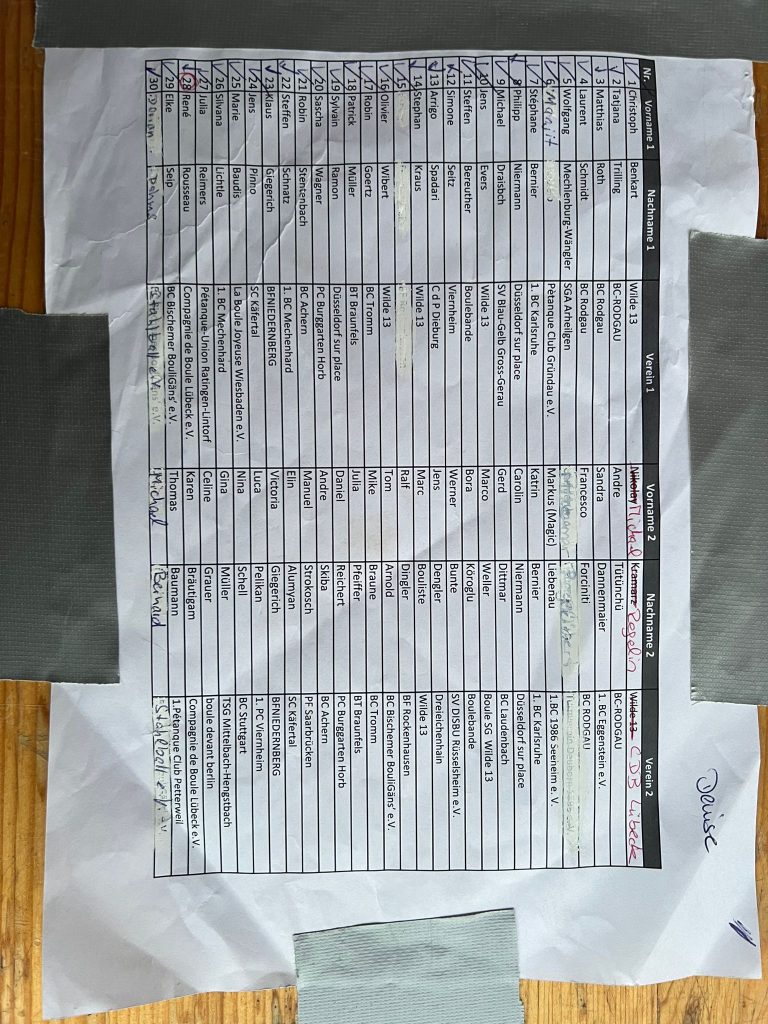 Denise
Nr. Vorname 1 Nachname 1 Verein 1 Vorname 2 Nachname 2 Verein 2
1 Christoph Benkart Wilde 13 Nikolay Michael Kramarz Rogelin Wilde 13 CDB Lübeck
2 Tatjana Trilling BC-RODGAU Andre Tütüncü BC-RODGAU
3 Matthias Roth BC Rodgau Sandra Dannenmaier 1. BC Eggenstein e.V.
4 Laurent Schmidt BC Rodgau Francesco Forciniti BC RODGAU
5 Wolfgang Mechlenburg-Wängler SGA Arheilgen
6 Pétanque Club Gründau e.V. Markus (Magic) Liebenau 1.BC 1986 Seeneim e.V.
7 Stéphane Bernier 1. BC Karlsruhe Katrin Bernier 1. BC Karlsruhe
8 Philipp Niermann Düsseldorf sur place Carolin Niermann Düsseldorf sur place
9 Michael Draisbch SV Blau-Gelb Gross-Gerau Gerd Dittmar BC Laudenbach
10 Jens Evers Wilde 13 Marco Weller Boule SG Wilde 13
11 Steffen Bereuther Boulebande Bora Köroglu Boulebande
12 Simone Seitz Viernheim Werner Bunte SV DISBU Rüsselsheim e.V.
13 Arrigo Spadari C d P Dieburg Jens Dengler Dreieichenhain
14 Stephan Kraus Wilde 13 Marc Bouliste Wilde 13
15 Ralf Dingler BF Rockenhausen
16 Olivier Wibert Wilde 13 Tom Arnold BC Bischemer BouliGäns' e.V.
17 Robin Goertz BC Tromm Mike Braune BC Tromm
18 Patrick Müller BT Braunfels Julia Pfeiffer BT Braunfels
19 Sylvain Ramon Düsseldorf sur place Daniel Reichert PC Burggarten Horb
20 Sascha Wagner PC Burggarten Horb Andre Skiba BC Achern
21 Robin Stentenbach BC Achern Manuel Strokosch PF Saarbrücken
22 Steffen Schnatz 1. BC Mechenhard Elin Alumyan SC Käfertal
23 Klaus Giegerich BFNIEDERNBERG Victoria Giegerich BFNIEDERNBERG
24 Jens Pinno SC Käfertal Luca Pelikan 1. PC Viernheim
25 Marie Baudis La Boule Joyeuse Wiesbaden e.V. Nina Schell BC Stuttgart
26 Silvana Lichtle 1. BC Mechenhard Gina Müller TSG Mittelbach-Hengstbach
27 Julia Reimers Pétanque-Union Ratingen-Lintorf Celine Grauer boule devant berlin
28 René Rousseau Compagnie de Boule Lübeck e.V. Karen Bräutigam Compagnie de Boule Lübeck e.V.
29 Elke Seip BC Bischemer BouliGäns' e.V. Thomas Baumann 1.Pétanque Club Petterweil
30 Michael Beinard